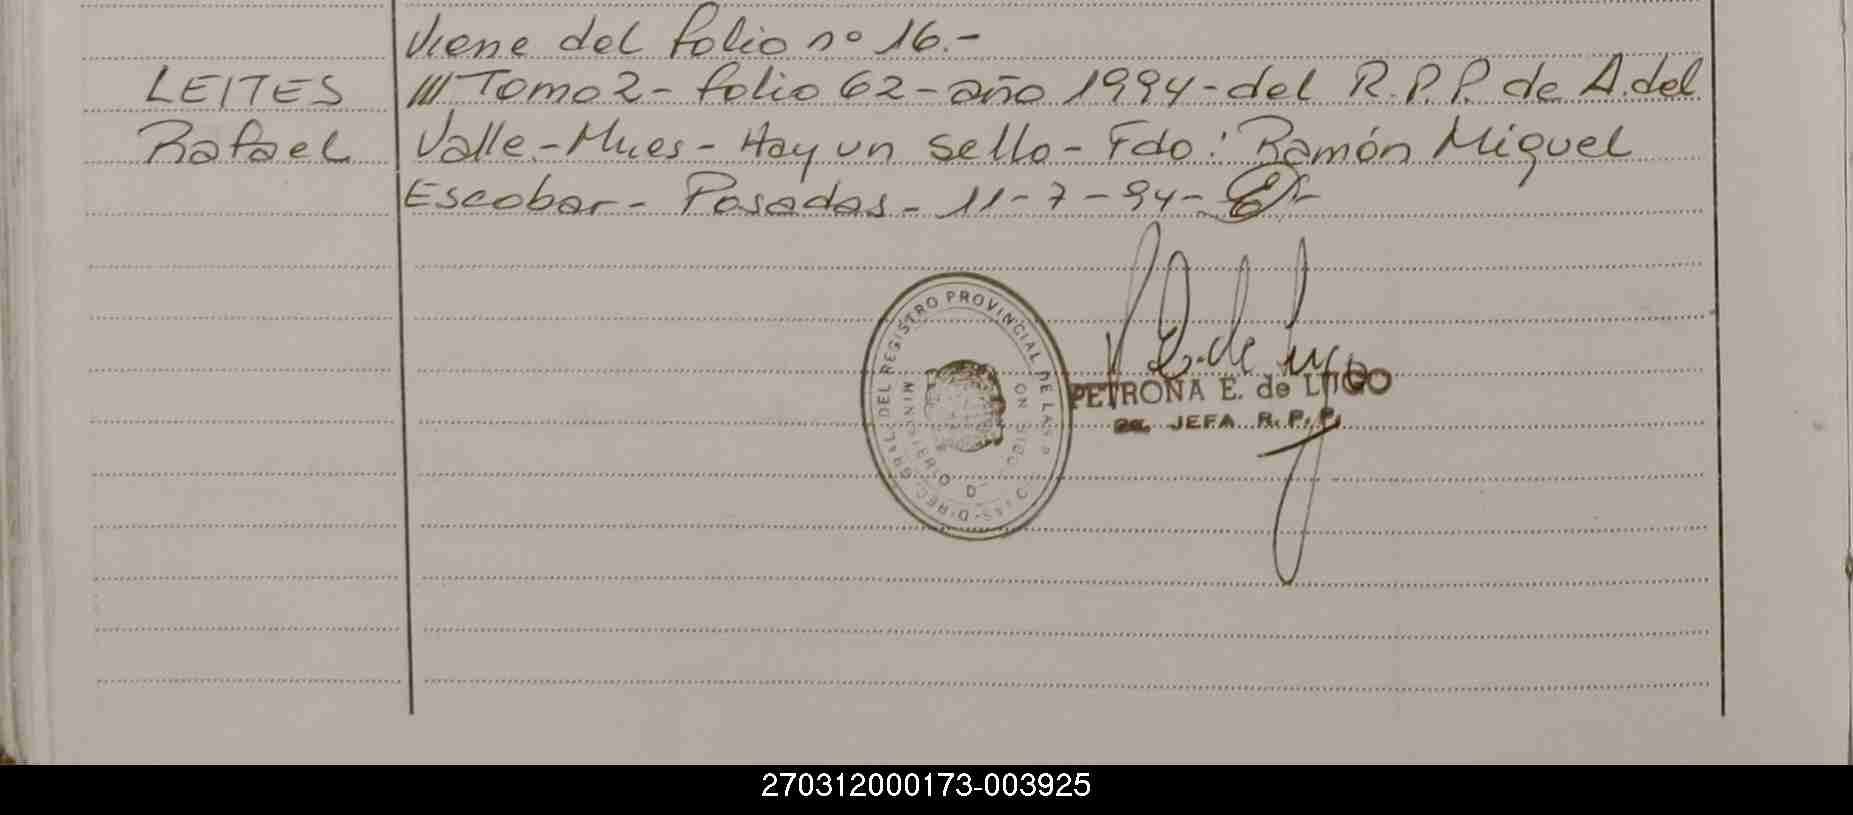 Viene del folio nº 16.-
LEITES /// Tomo 2 - folio 62 - año 1994 - del R.P.P. de A. del
Rafael Valle - Mnes - Hay un sello - Fdo: Ramón Miguel
Escobar - Posadas - 11-7-94-
REGISTRO PROVINCIAL DE LAS
MINISTERIO D
PETRONA E. de LUGO
JEFA R. P. P.
270312000173-003925